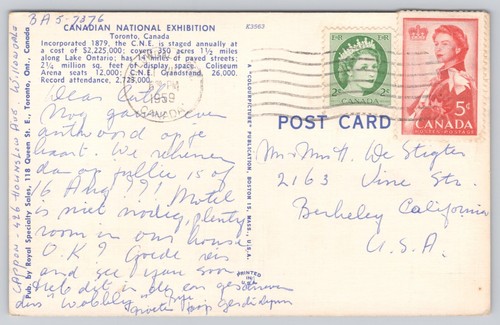 BA5-7376
CANADIAN NATIONAL EXHIBITION
Toronto, Canada
K3563
Incorporated 1879, the C.N.E. is staged annually at
a cost of $2,225,000; covers 350 acres 1½ miles
along Lake Ontario; has 7 miles of paved streets;
2¼ million sq. feet of display, space. Coliseum
Arena seats 12,000; C.N.E. Grandstand, 26,000.
Record attendance, 2,723,000.
PM
1959
CANADA
EIIR EIIR
2¢ 2¢
CANADA
CANADA
5¢
POSTES-POSTAGE
POST CARD
Dear
Nog gauw even
antwoord op je
kaart. We rekenen
da op jullie is of
16 Aug ??! Motel
is niet nodig, plenty
room in our house
O.K? Goede reis
and see you soon
Heb dit in de en geschreven
dus "Wobbly"
groetn
Mr & Mrs H. De Stigter
2163 Vine Str.
Berkeley California
U.S.A.
A "COLOURPICTURE" PUBLICATION, BOSTON 15, MASS., U.S.A.
PRINTED
IN
U.S.A.
Pub. by Royal Specialty Sales, 118 Queen St. E., Toronto, Ont., Canada
CAPPON-426 HOUNSLOW AVE WILLOWDALE